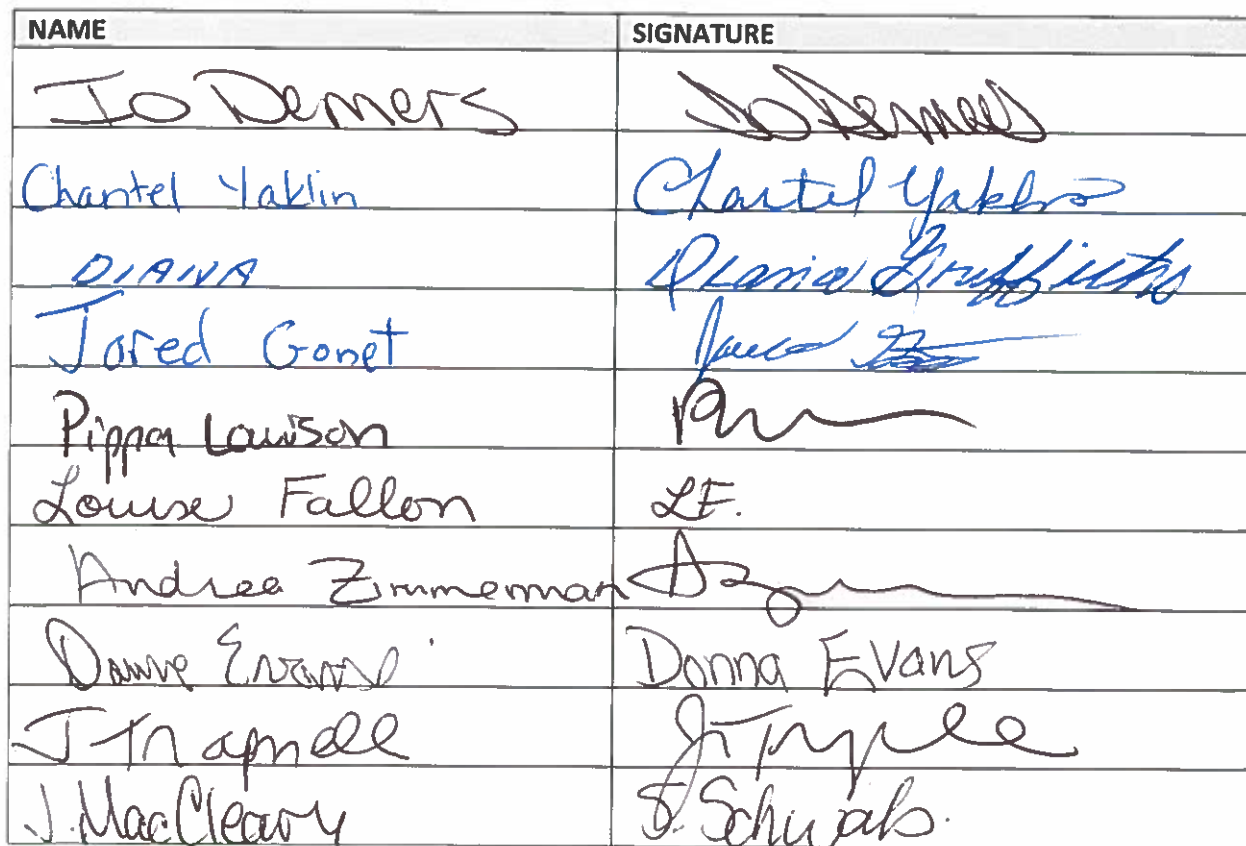 NAME SIGNATURE
Jo Demers Jo Demers
Chantel Yaklin Chantel Yaklin
DIANA Diana Griffiths
Jared Gonet Jared
Pippa Lawson
Louise Fallon LF.
Andrea Zimmerman
Evans Donna Evans
J Trapnell
J. MacCleary S. Schwab.